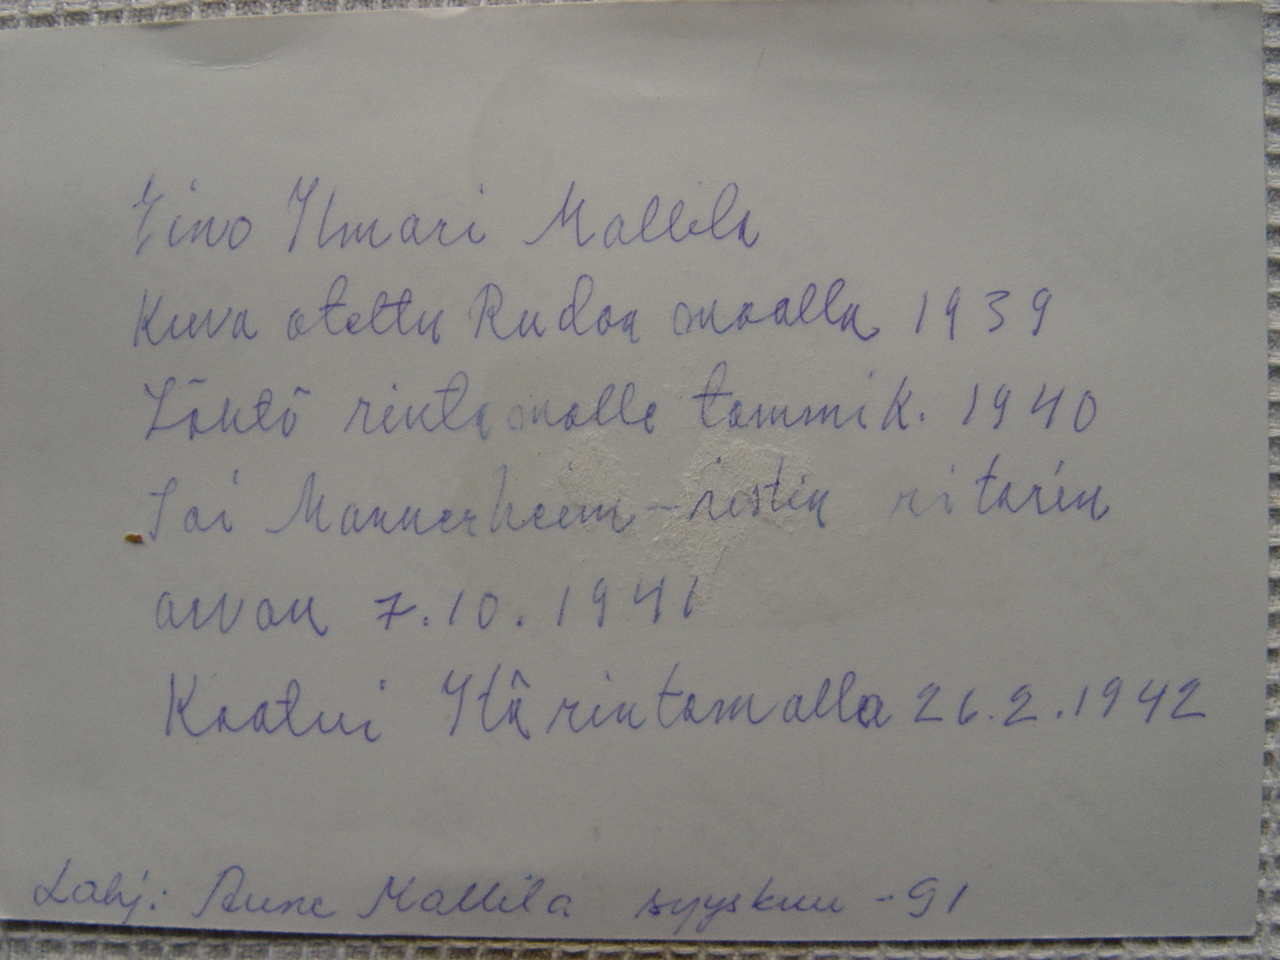 Eino Ilmari Mallila
Kuva otettu Rudan maalla 1939
Lähtö rintamalle tammik. 1940
Sai Mannerheim-ristin ritarin
arvon 7.10.1941
Kaatui Itä rintamalla 26.2.1942
Lahj: Aune Mallila syyskuu -91